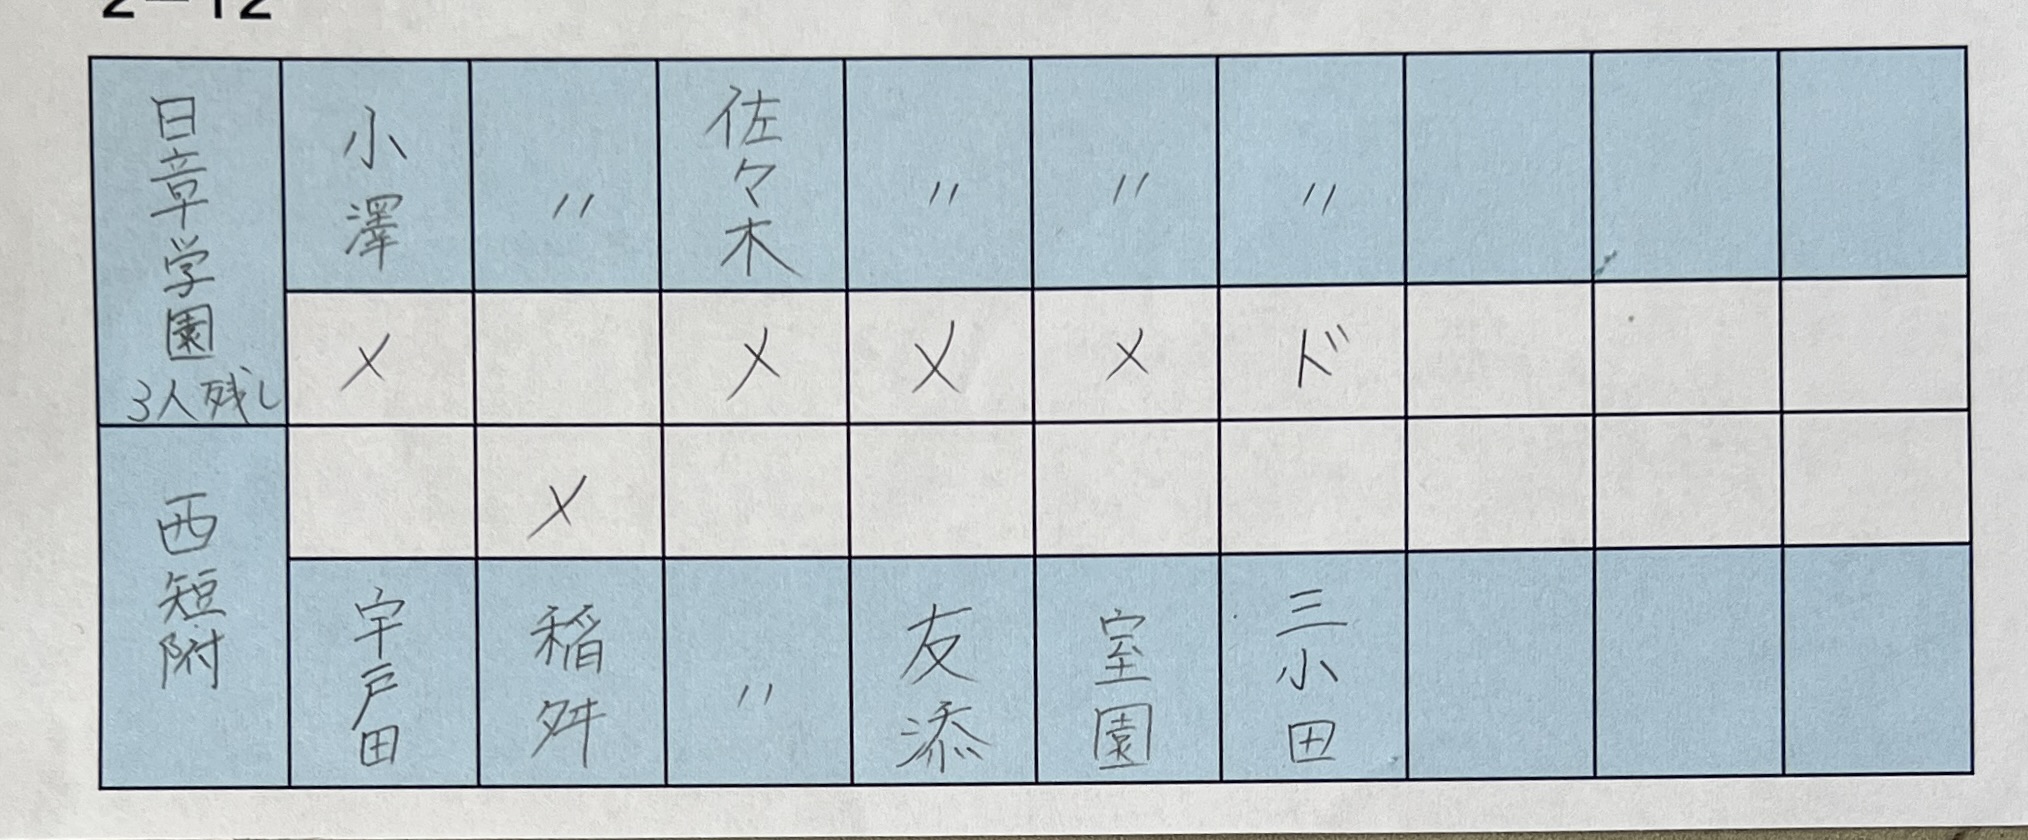 2-12
日章学園 小澤 〃 佐々木 〃 〃 〃
3人残し
メ メ メ メ ド
メ
西短附 宇戸田 稲舛 〃 友添 室園 三小田